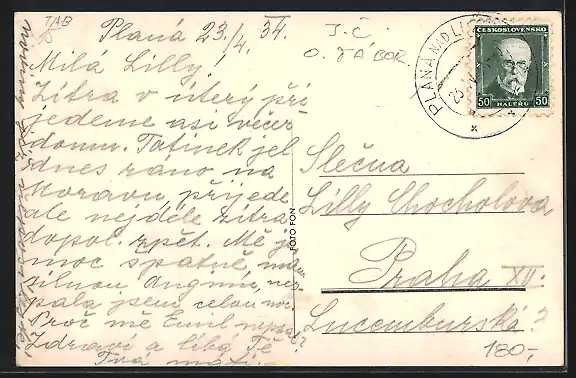 TAB
J.Č.
O. TÁBOR
Planá 23./4. 34.
Milá Lilly!
Zítra v úterý při
jedeme asi večer
domu. Tatínek jel
dnes ráno na
Moravu, přijede
ale nejdéle zítra
dopol. zpět. Mě je
moc špatně, mám
silnou anginu, nes
pala jsem celou noc.
Proč mě Emil nepsal?
Zdraví a líbá Tě
Tvá máti.
FOTO FON
ČESKOSLOVENSKO
50 HALÉŘŮ 50
PLANÁ NAD LUŽ
23
Slečna
Lilly Chocholova
Praha XII.
Lucemburská 3
180,-